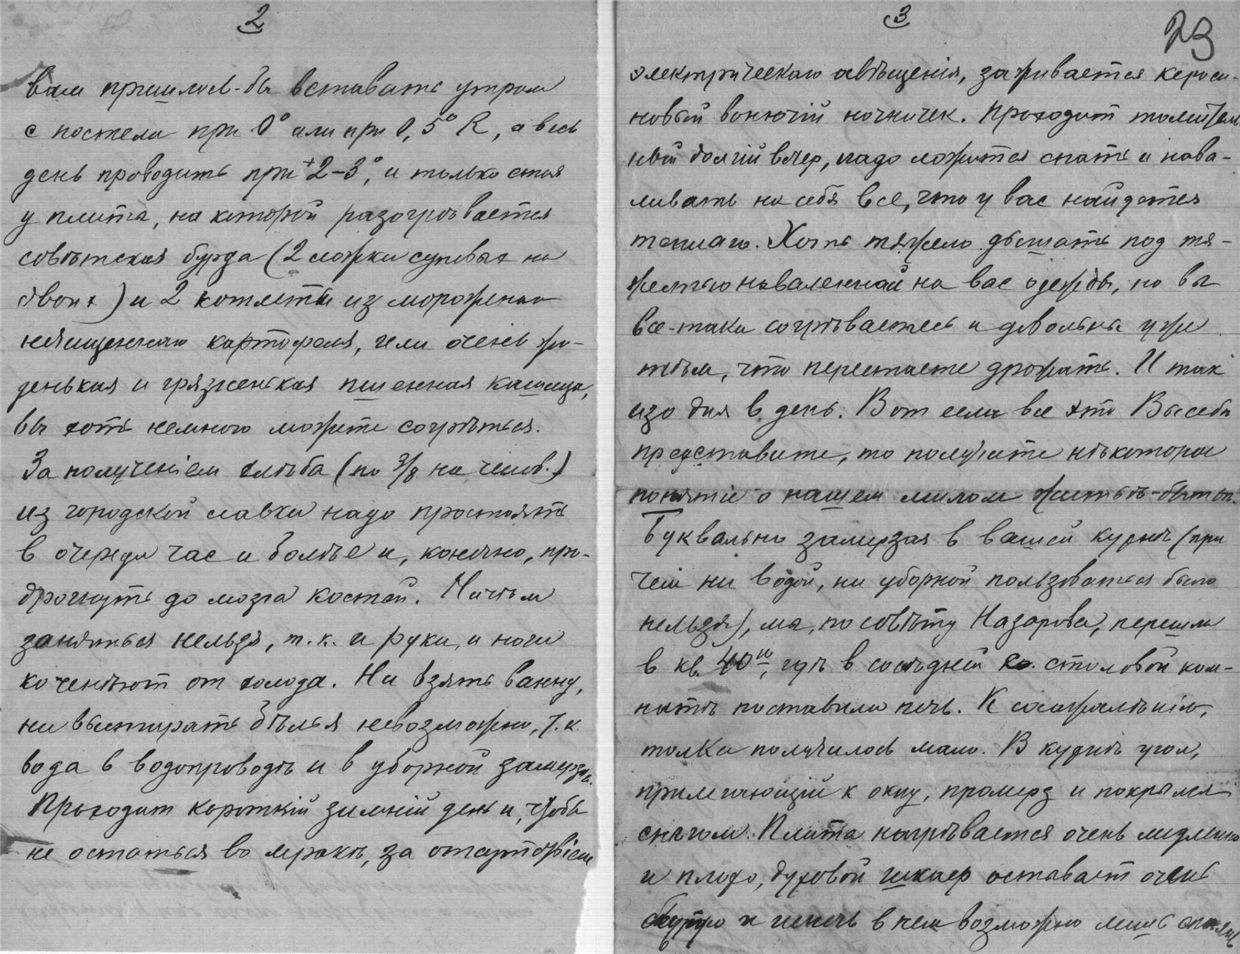 2
вам пришлось-бы вставать утром
с постели при 0° или при 0,5° R, а весь
день проводить при +2-3°, и только стоя
у плиты, на которой разогрѣвается
совѣтская бурда (2 ложки суповых на
двоих) и 2 котлеты из мороженаго
нечищеннаго картофеля, или очень жи-
денькая и грязненькая пшенная кашица,
вы хоть немного можете согрѣться.
За полученіем хлѣба (по 3/8 на челов.)
из городской лавки надо простоять
в очереди час и болѣе и, конечно, про-
дрогнуть до мозга костей. Ничѣм
заняться нельзя, т.к. и руки, и ноги
коченѣют от холода. Ни взять ванну,
ни выстирать бѣлья невозможно, т.к
вода в водопроводѣ и в уборной замерзла.
Проходит короткій зимній день и, чтобы
не остаться во мракѣ, за отсутствіем
3
23
электрическаго освѣщенія, зажигается кероси-
новый вонючій ночничек. Проходит томитель
ный долгій вечер, надо ложиться спать и нава-
ливать на себя все, что у вас найдется
теплаго. Хоть тяжело дышать под тя-
жестью наваленной на вас одежды, но вы
все-таки согрѣваетесь и довольны уже
тѣм, что перестаете дрожать. И так
изо дня в день. Вот если все это Вы себѣ
представите, то получите нѣкоторое
понятіе о нашем милом житьѣ-бытьѣ.
Буквально замерзая в вашей кухнѣ (при
чем ни водой, ни уборной пользоваться было
нельзя), мы, по совѣту Назарова, перешли
в кв. 40ю, гдѣ в сосѣдней со столовой ком-
натѣ поставили печь. К сожалѣнію,
толка получилось мало. В кухнѣ угол,
прилегающій к окну, промерз и покрылся
снѣгом. Плита нагрѣвается очень медленно
и плохо, духовой шкаф остывает очень
быстро и печь в нем возможно лишь